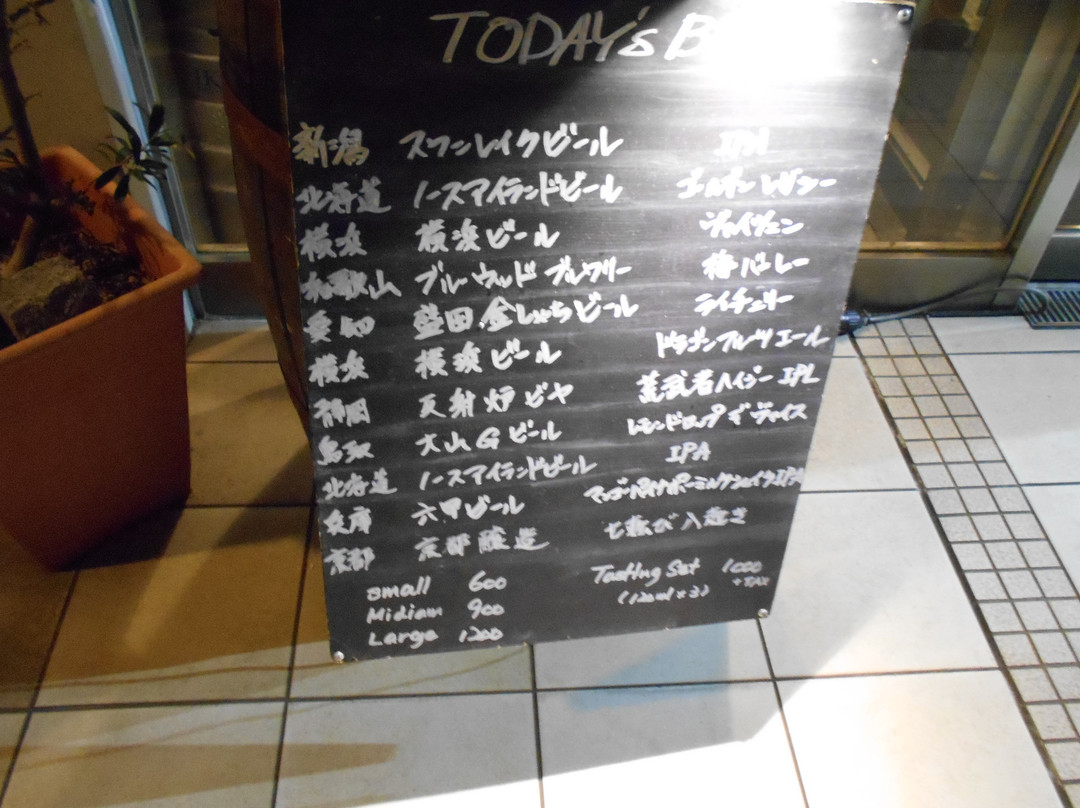 TODAY's B
新潟 スワンレイクビール IPA
北海道 ノースアイランドビール ゴールデンレジシー
横浜 横浜ビール ヴァイツェン
和歌山 ブルーウッドブルワリー 梅バーレー
愛知 盛田金しゃちビール ライチェリー
横浜 横浜ビール ドラゴンフルーツエール
静岡 反射炉ビヤ 荒武者ハイジー IPL
鳥取 大山Gビール レモンドロップ ザ ヴァイス
北海道 ノースアイランドビール IPA
兵庫 六甲ビール マンゴーパイナポーミルクシェイクIPA
京都 京都醸造 七転び八起き
small 600 Tasting Set 1000
Midiam 900 (120ml×3) +TAX
Large 1200